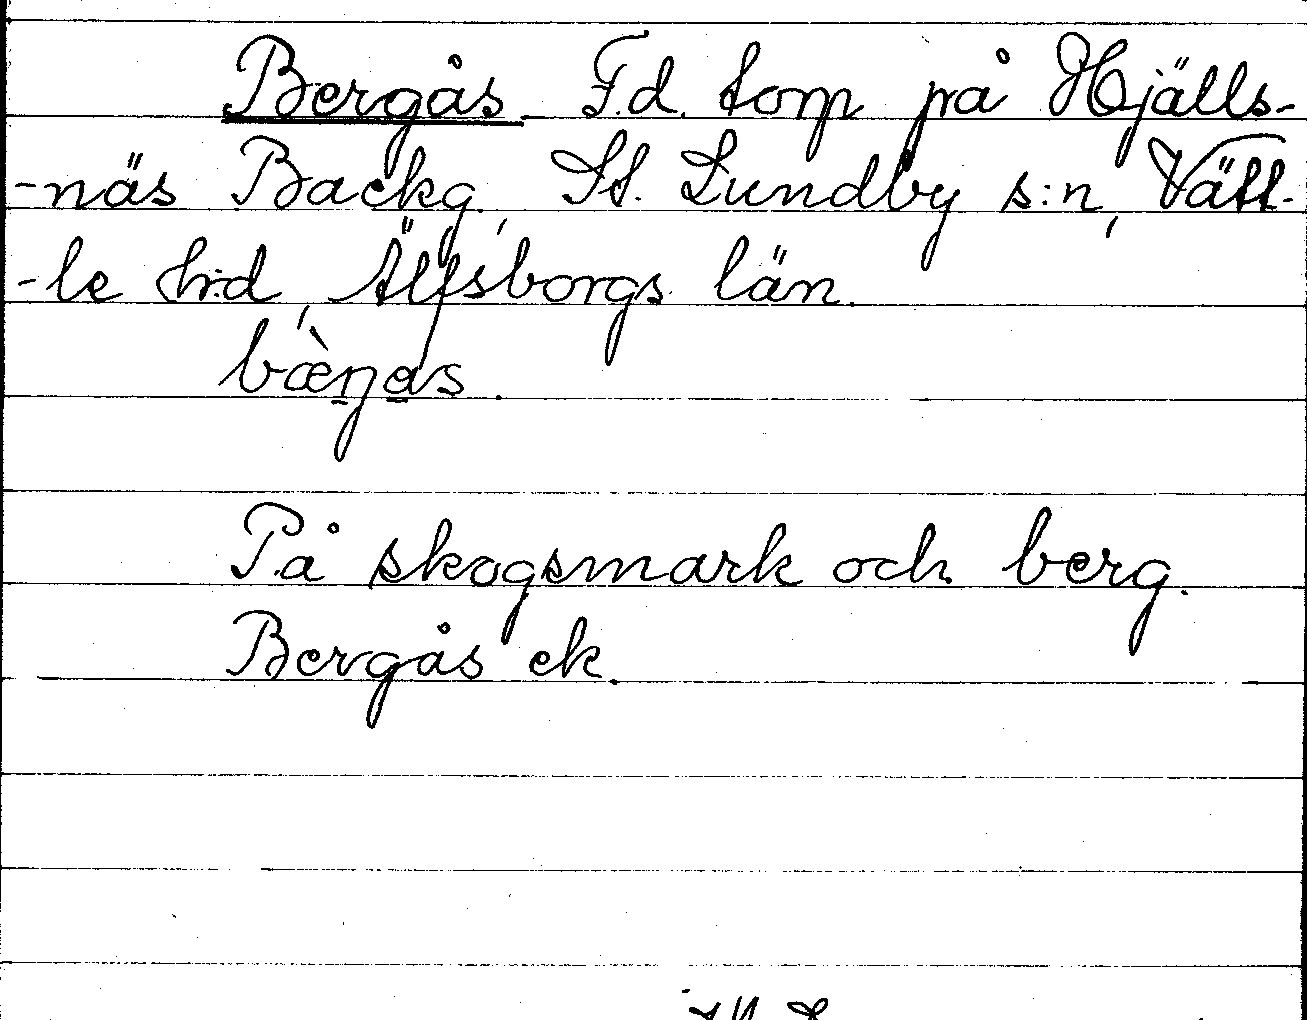 Bergås. F.d. torp på Hjälls-
-näs Backg, St. Lundby s:n, Vätt-
-le h:d, Älfsborgs län.
På skogsmark och berg.
Bergås ek.